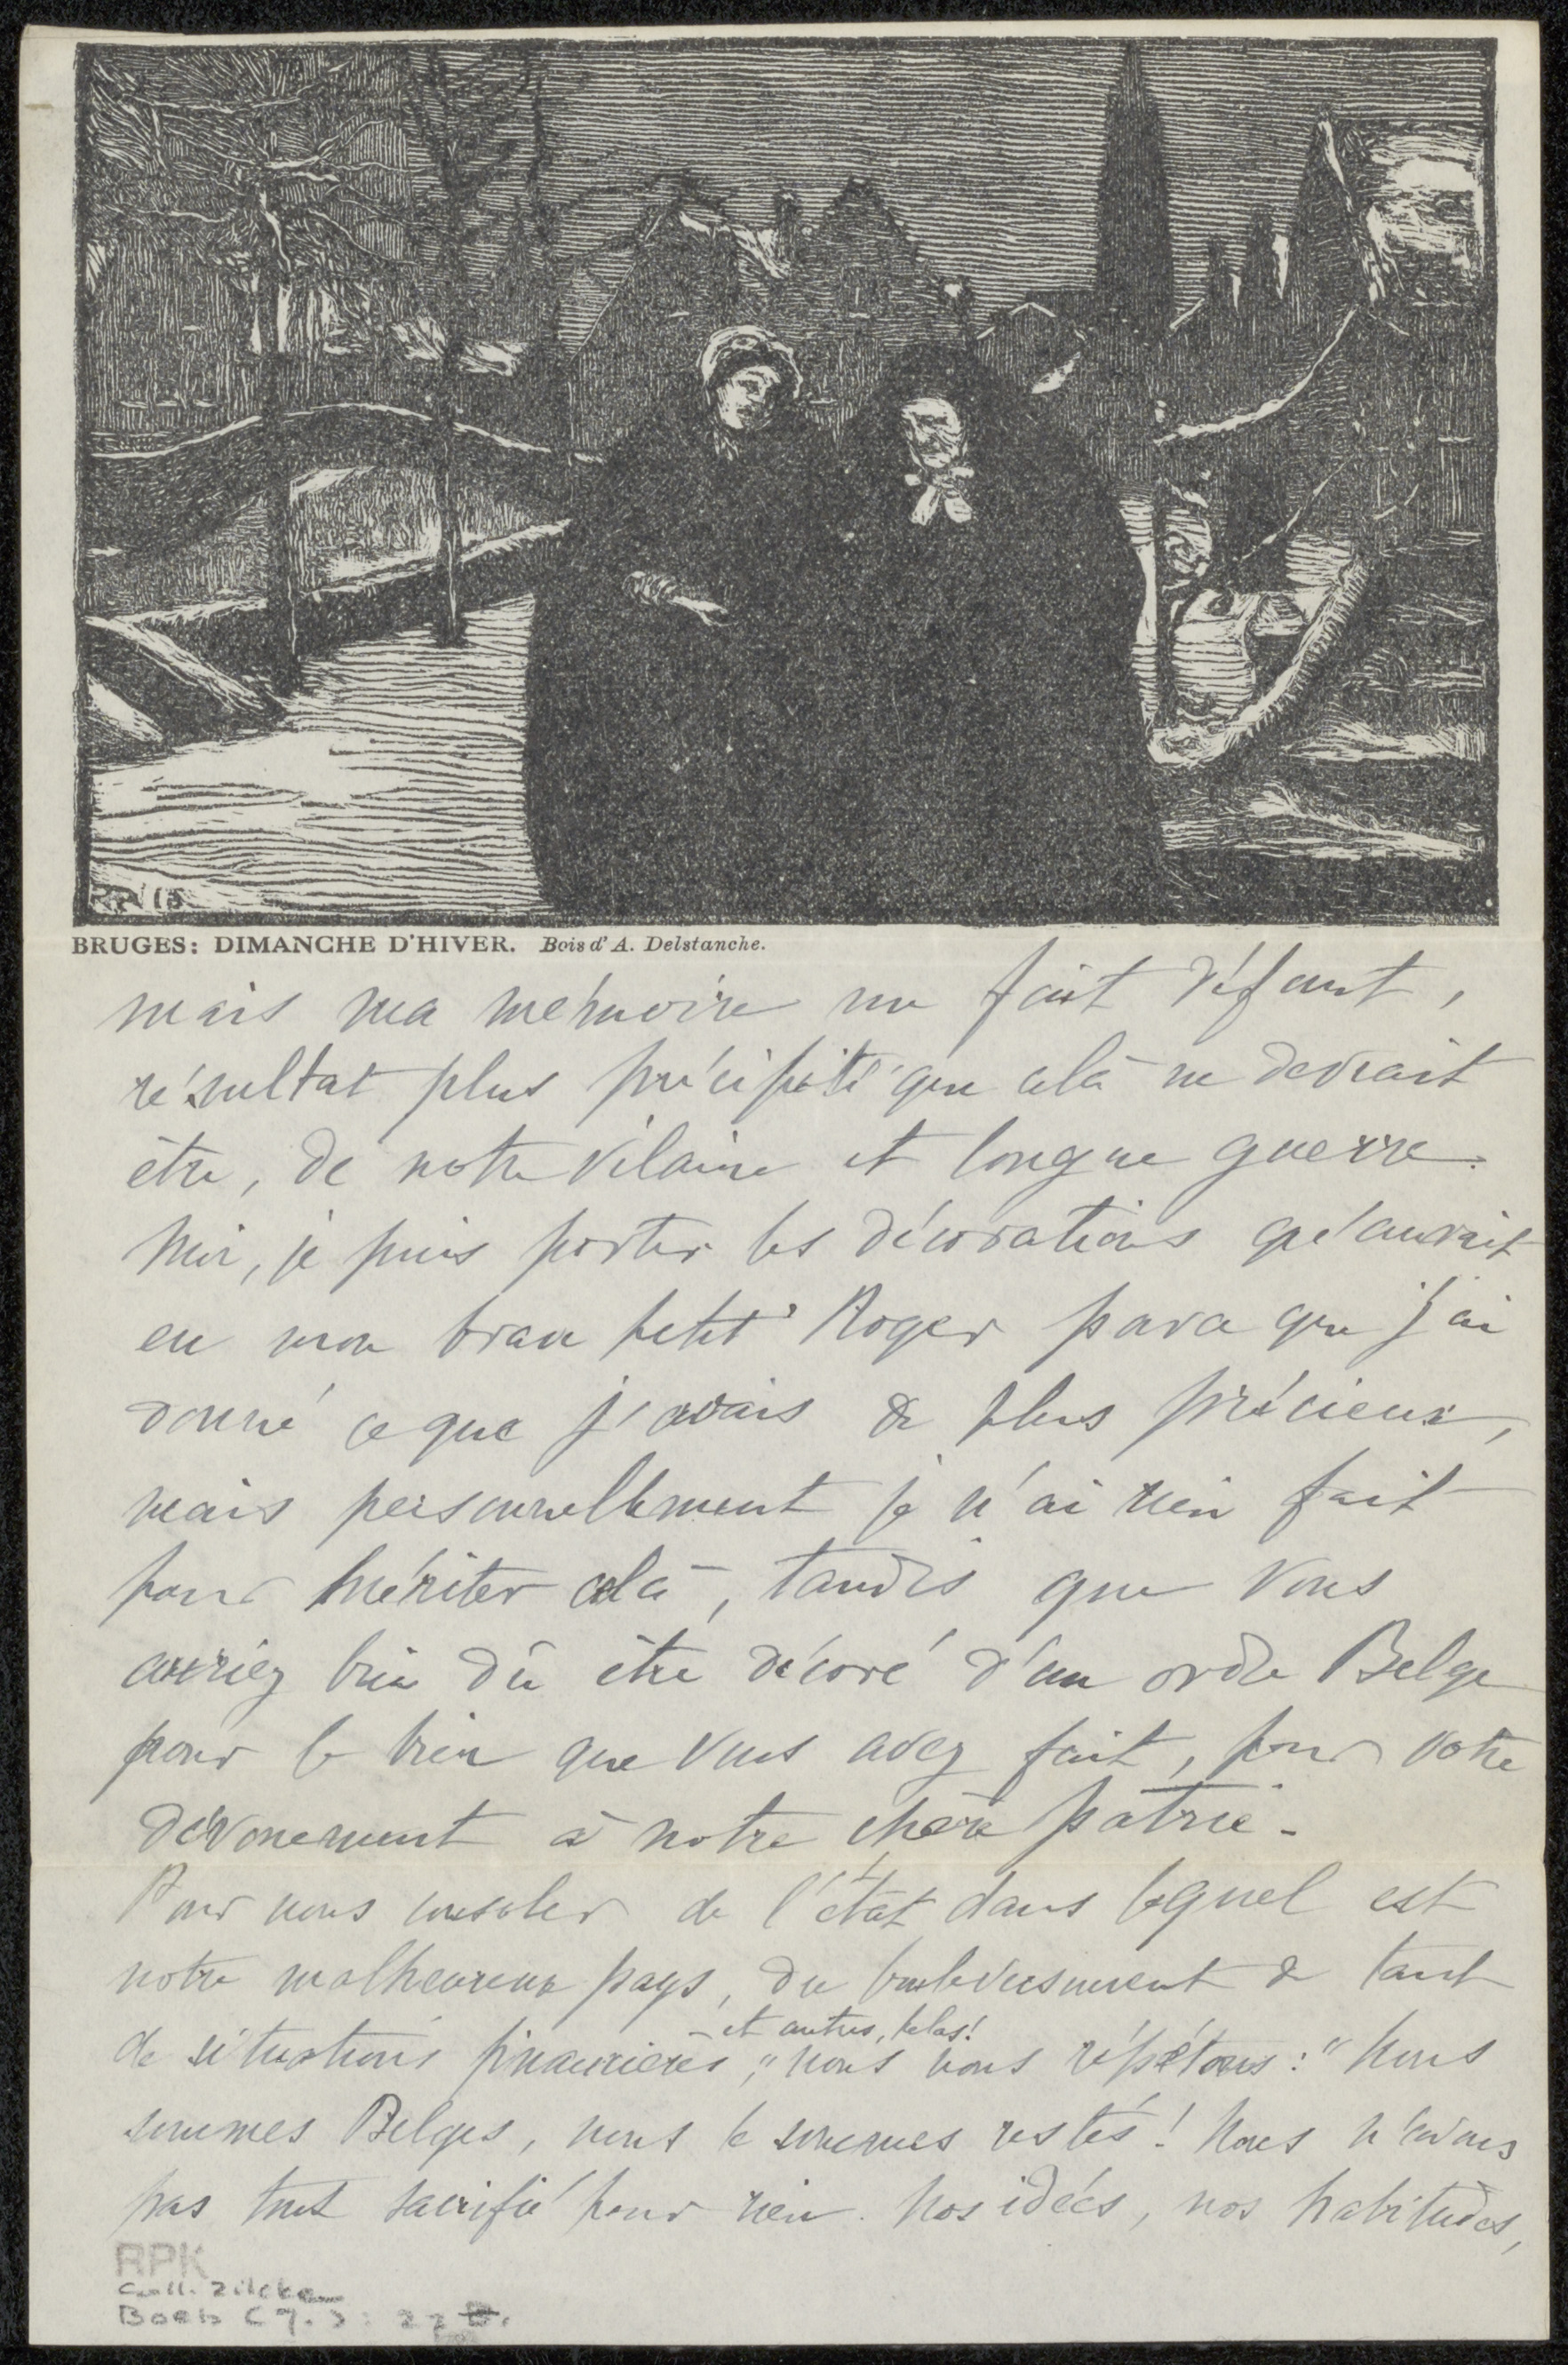 BRUGES: DIMANCHE D'HIVER. Bois d'A. Delstanche.
mais ma mémoire me fait défaut,
résultat plus précipité que celà ne devrait
être, de notre vilaine et longue guerre.
Moi, je puis porter les décorations qu'aurait
eu mon brave petit Roger parce que j'ai
donné ce que j'avais de plus précieux,
mais personnellement je n'ai rien fait
pour mériter celà, tandis que vous
auriez bien dû être décoré d'un ordre Belge
pour le bien que vous avez fait, pour votre
dévouement à notre chère patrie.
Pour nous consoler de l'état dans lequel est
notre malheureux pays, du bouleversement de tant
- et autres, hélas!
de situations financières, nous nous répétons: "Nous
sommes Belges, nous le sommes restés! Nous n'avons
pas tout sacrifié pour rien. Nos idées, nos habitudes,
RPK
Coll. Zilcken
Boek